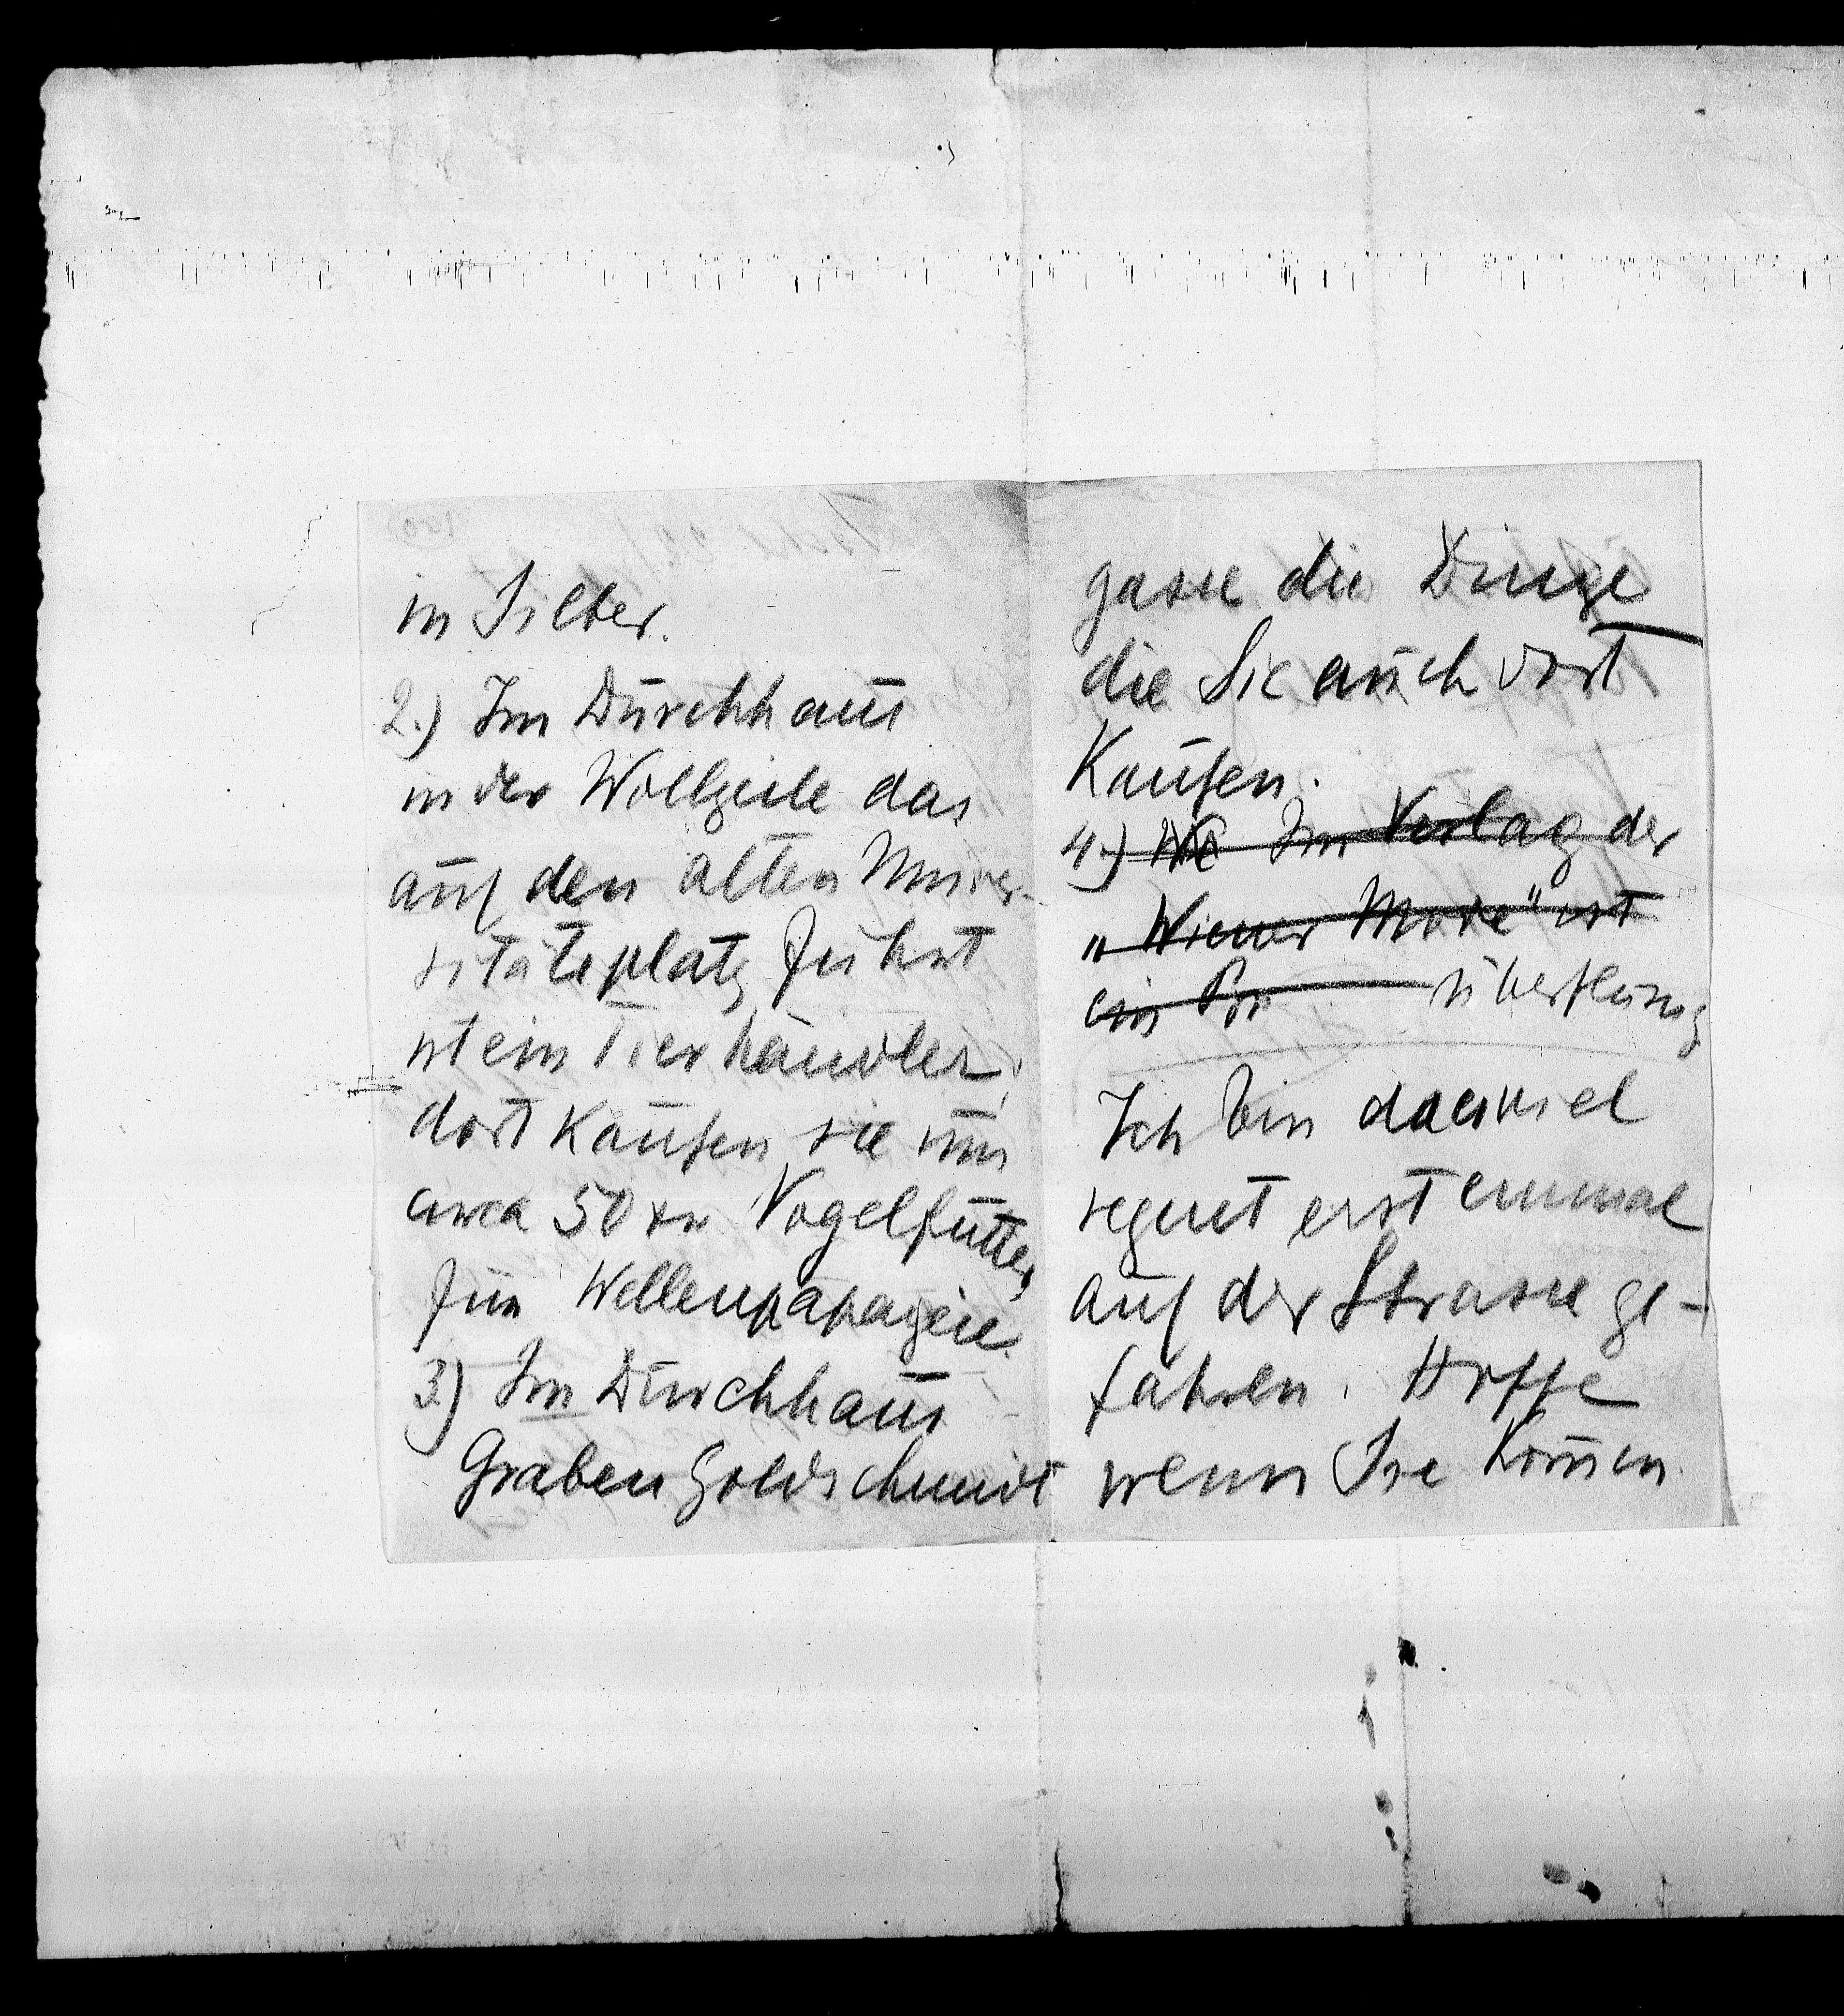 in Silber.
2.) Im Durchhaus
in der Wollzeile das
auf den alten Univer-
sitätsplatz führt
ist ein Tierhändler,
dort kaufen sie um
circa 50 xr Vogelfutter
für Wellenpapageie.
3) Im Durchhaus
Graben Goldschmidt
gasse die Dinge
die Sie auch dort
Kaufen.
4.) Im Verlag der
„Wiener Mode" ist
ein überflüssig
Ich bin da
regnet erst einmal
auf der Strasse ge-
fahren. Hoffe
wenn Sie kom̅en